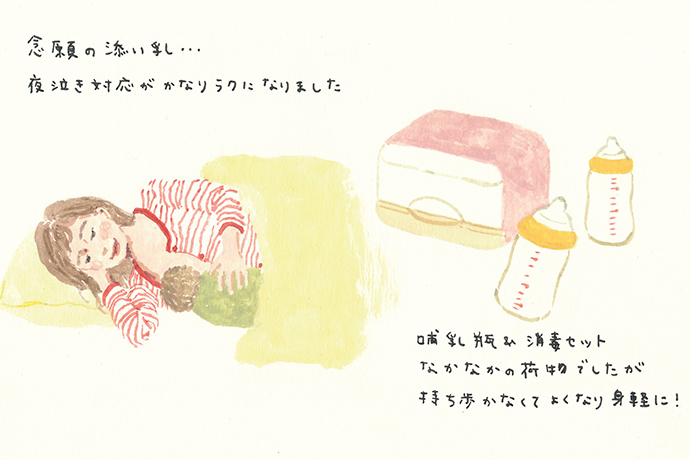 念願の添い乳・・・
夜泣き対応がかなりラクになりました
哺乳瓶&消毒セット
なかなかの荷物でしたが
持ち歩かなくてよくなり身軽に!